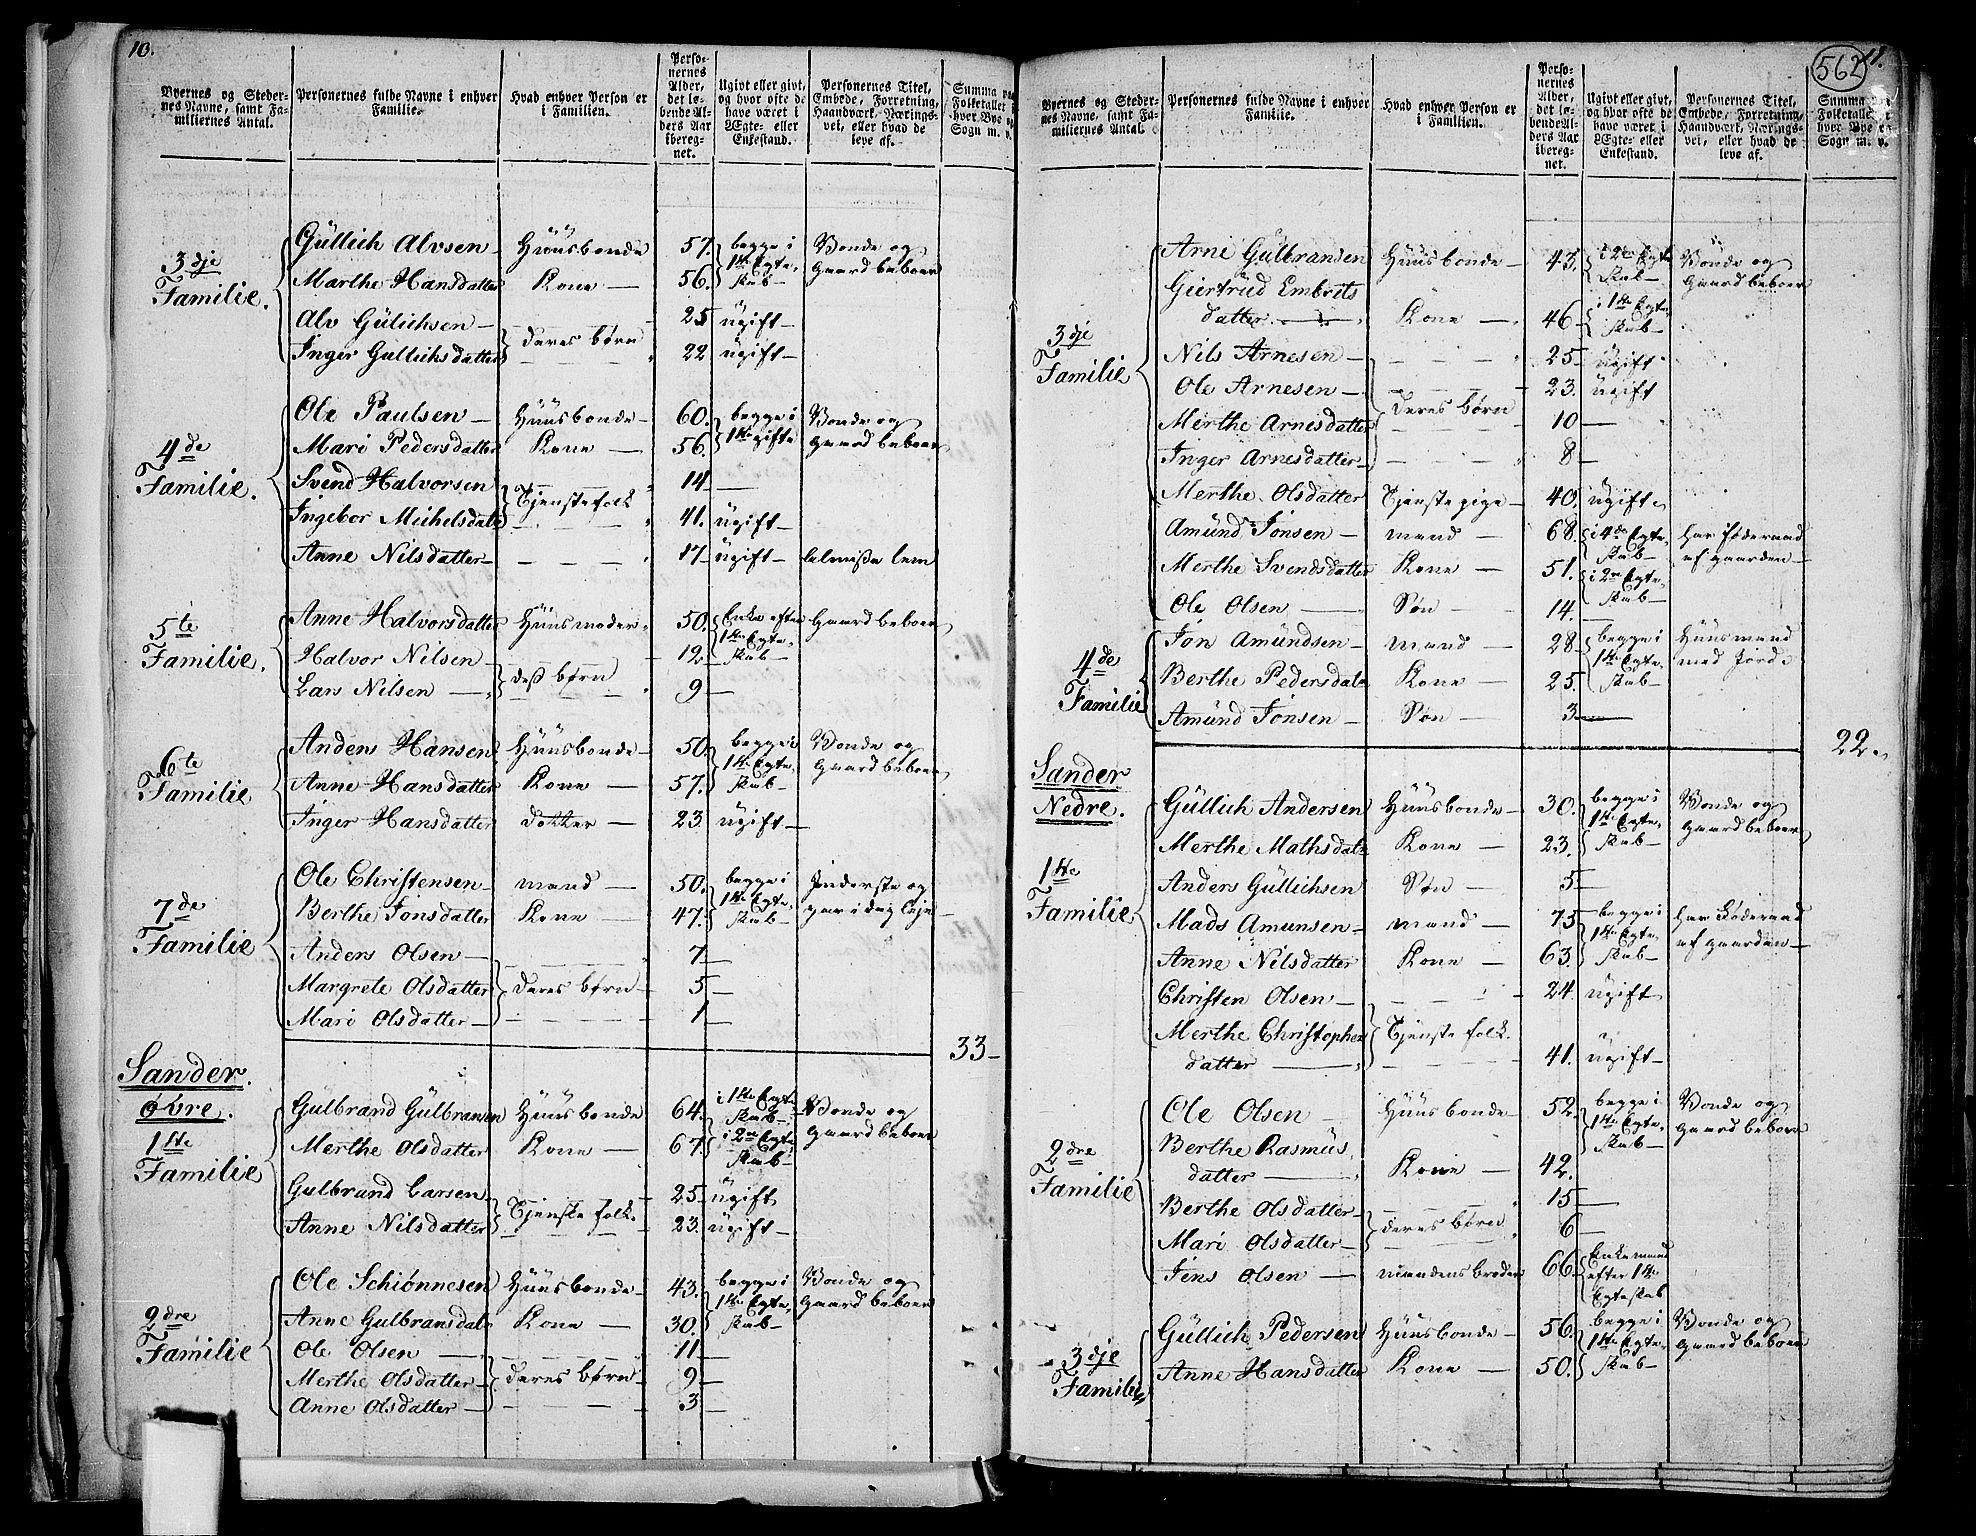 10.
Byernes og Steder-
nes Navne, samt Fa-
miliernes Antal.
Personernes fulde Navne i enhver
Familie.
Hvad enhver Person er
i Familien.
Perso-
nernes
Alder,
det lø-
bende Al-
ders Aar
ibereg-
net.
Ugivt eller givt,
og hvor ofte de
have været i
Ægte- eller
Enkestand.
Personernes Titel,
Embede, Forretning,
Haandværk, Nærings-
vei, eller hvad de
leve af.
Summa
Folketallet
hver Bye
Sogn m. v.
3dje Familie.
Güllich Alvsen — Huusbonde 57. begge i 1ste Egteskab — Bonde og Gaardbeboer
Marthe Hansdatter Kone — 56.
Alv Gülichsen — deres børn 25 ugift —
Inger Gullichsdatter 22 ugift —
4de Familie.
Ole Paulsen — Huusbonde — 60. begge i 1ste gifte Bonde og Gaardbeboer
Mari Pedersdatter Kone — 56.
Svend Halvorsen Tjenestefolk 14 —
Ingebor Michelsdatt 41. ugift —
Anne Nilsdatter — 17 — ugift — lem
5te Familie.
Anne Halvorsdatter Huusmoder 50. Enke efter 1ste Egteskab — Gaardbeboer
Halvor Nilsen — deß børn 12 —
Lars Nilsen — 9 —
6te Familie
Anders Hansen Huusbonde — 50 begge i 1ste Egteskab — Bonde og Gaardbeboer
Anne Hansdatter Kone — 57.
Inger Hansdatter dotter — 23 ugift —
7de Familie
Ole Christensen — mand — 50. begge i 1ste Egteskab — Inderste og gaar i dag leje
Berthe Jonsdatter Kone — 47.
Anders Olsen — 7 —
Margrete Olsdatter deres børn — 5 —
Mari Olsdatter — 1 —
33 —
Sander.
Øvre.
1ste Familie
Gulbrand Gülbransen Huusbonde 64. i 1ste Egteskab — Bonde og Gaardbeboer
Merthe Olsdatter Kone — 67. i 2den Egteskab —
Gulbrand Larsen — Tjenestefolk. 25 — ugift
Anne Nilsdatter 23. ugift —
2dre Familie
Ole Schiönnesen Huusbonde — 43. begge i 1ste Egteskab — Bonde og Gaardbeboer
Anne Gulbransdat Kone — 30.
Ole Olsen — 11 —
Merthe Olsdatter — deres børn — 9 —
Anne Olsdatter — 3 —
562
11.
Byernes og Steder-
nes Navne, samt Fa-
miliernes Antal.
Personernes fulde Navne i enhver
Familie.
Hvad enhver Person er
i Familien.
Perso-
nernes
Alder,
det lø-
bende Al-
ders Aar
ibereg-
net.
Ugivt eller givt,
og hvor ofte de
have været i
Ægte- eller
Enkestand.
Personernes Titel,
Embede, Forretning,
Haandværk, Nærings-
vei, eller hvad de
leve af.
Summa
Folketallet
hver Bye
Sogn m. v.
3dje Familie
Arne Gülbransen Huusbonde — 43. i 2den Egteskab — Bonde og Gaardbeboer
Giertrüd Embrets
datter — Kone — 46 — i 1ste Egteskab —
Nils Arnesen — 25 — ugift
Ole Arnesen — deres børn 23. ugift
Merthe Arnesdatter 10 —
Inger Arnesdatter — 8 —
Merthe Olsdatter Tjenestepige — 40. ugift
Amünd Jonsen — mand — 68. i 4de Egteskab — har föderaad af gaarden —
Merthe Svendsdatter Kone — 51. i 2den Egteskab —
Ole Olsen — Søn — 14. —
4de Familie
Jon Amündsen — mand — 28 — begge i 1ste Egteskab — Huusmand med Jord.
Berthe Pedersdat Kone — 25.
Amünd Jonsen — Søn — 3 —
22.
Sander
Nedre.
1ste Familie
Güllich Andersen Huusbonde — 30. begge i 1ste Egteskab — Bonde og Gaardbeboer
Merthe Mathsdat Kone — 23.
Anders Güllichsen Søn — 5 —
Mads Amunsen — mand — 75 — begge i 1ste Egteskab — har Föderaad af gaarden —
Anne Nilsdatter Kone — 63.
Christen Olsen — Tjenestefolk. 24 ugift
Merthe Christophers
datter — 41. ugift —
2dre Familie
Ole Olsen Huusbonde — 52. begge i 1ste Egteskab — Bonde og Gaardbeboer
Berthe Rasmüs
datter — Kone — 42.
Berthe Olsdatter — deres børn 15 —
Mari Olsdatter — 6 —
Jens Olsen — mandens broder 66 — Enkemand efter 1ste Egteskab
3dje Familie
Güllich Pedersen Huusbonde — 56. begge i 1ste Egteskab — Bonde og Gaardbeboer
Anne Hansdatter Kone — 50.